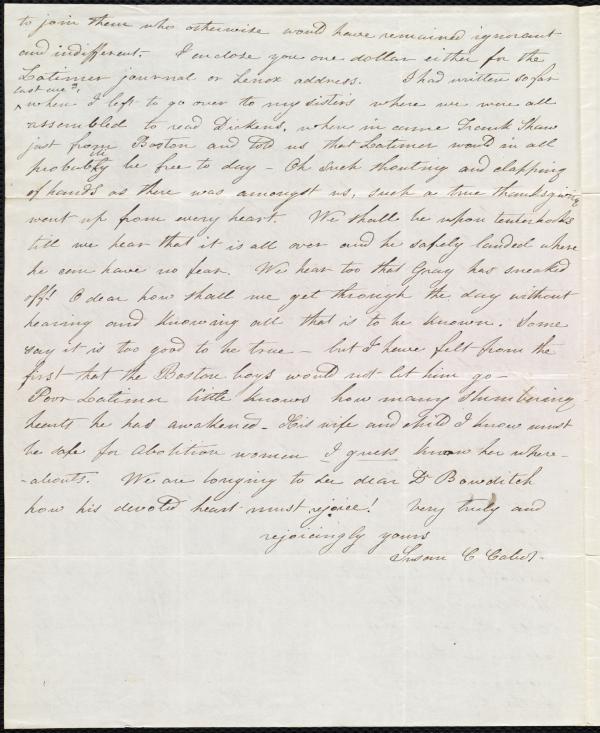 to join them who otherwise would have remained ignorant
and indifferent. I enclose you one dollar either for the
Latimer journal or Lenox address. I had written so far
last eve'g,
when I left to go over to my sister's where we were all
assembled to read Dickens, when in came Frank Shaw
just from Boston and told us that Latimer would in all
probability be free to day - Oh such shouting and clapping
of hands as there was amongst us, such a true thanksgiving
went up from every heart. We shall be upon tenterhooks
till we hear that it is all over and he safely landed where
he can have no fear. We hear too that Gray has sneaked
off! O dear how shall we get through the day without
hearing and knowing all that is to be known. Some
say it is too good to be true - but I have felt from the
first that the Boston boys would not let him go -
Poor Latimer little knows how many slumbering
hearts he has awakened - His wife and child I know must
be safe for Abolition women I guess know her where-
-abouts. We are longing to see dear Dr Bowditch
how his devoted heart must rejoice! Very truly and
rejoicingly yours
Susan C Cabot.